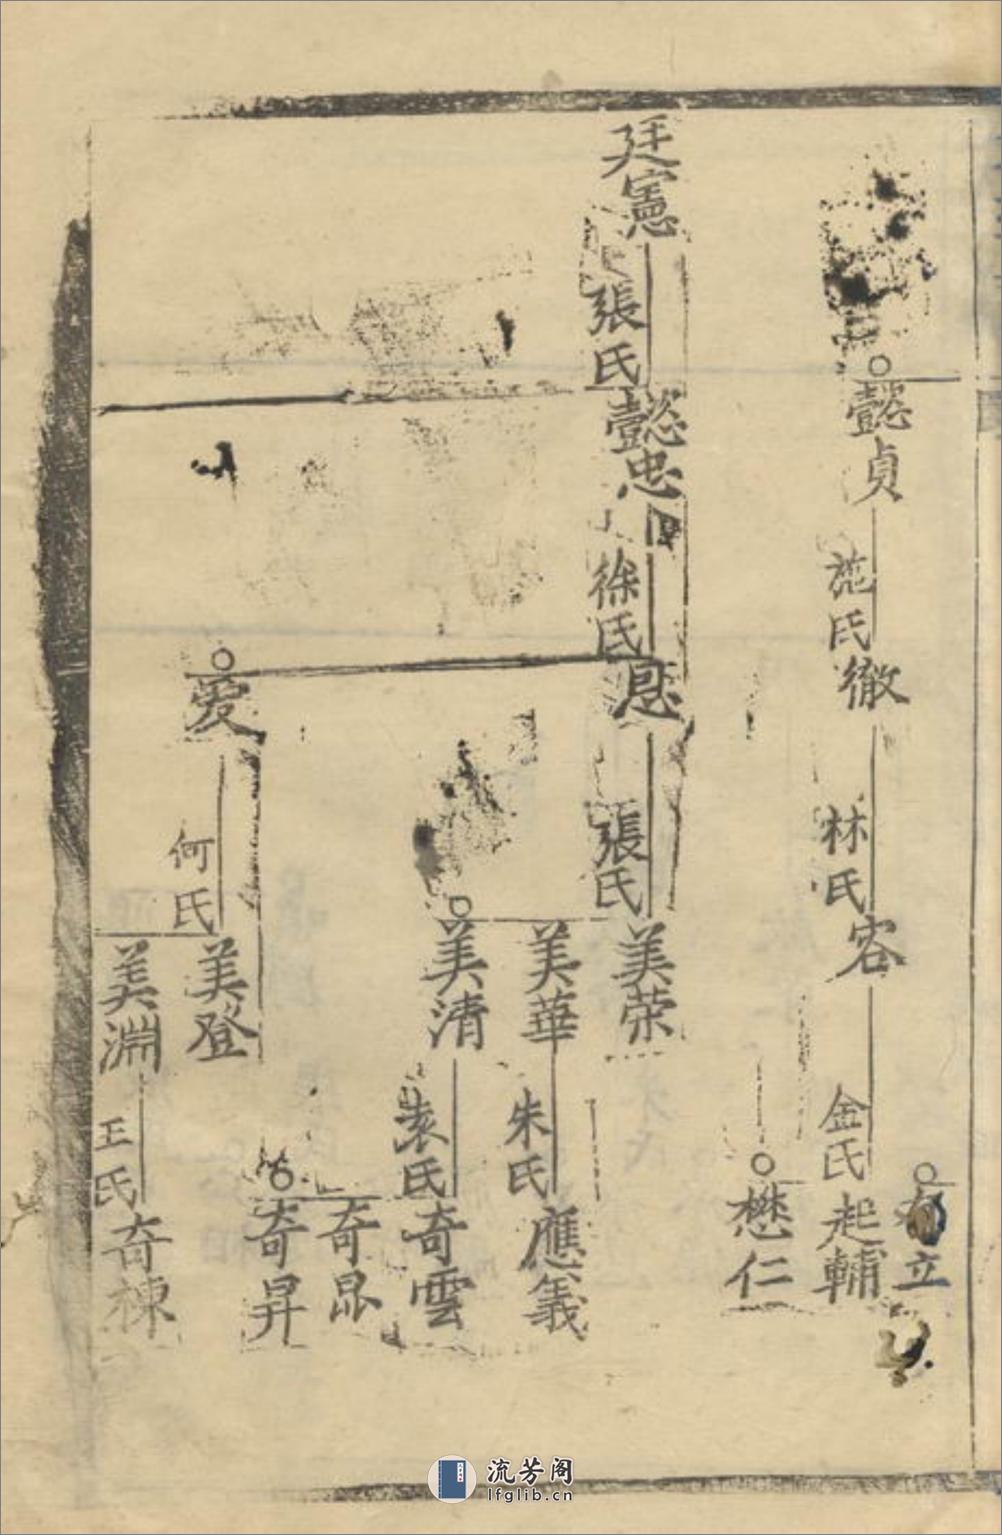 懿貞
施氏
徹
林氏
容
金氏
立
起輔
懋仁
廷憲
張氏
懿忠
徐氏
恩
張氏
美荣
美華
朱氏
應義
美清
袁氏
奇雲
奇昴
奇昇
爱
何氏
美登
美淵
王氏
奇棟
流芳阁
lfglib.cn